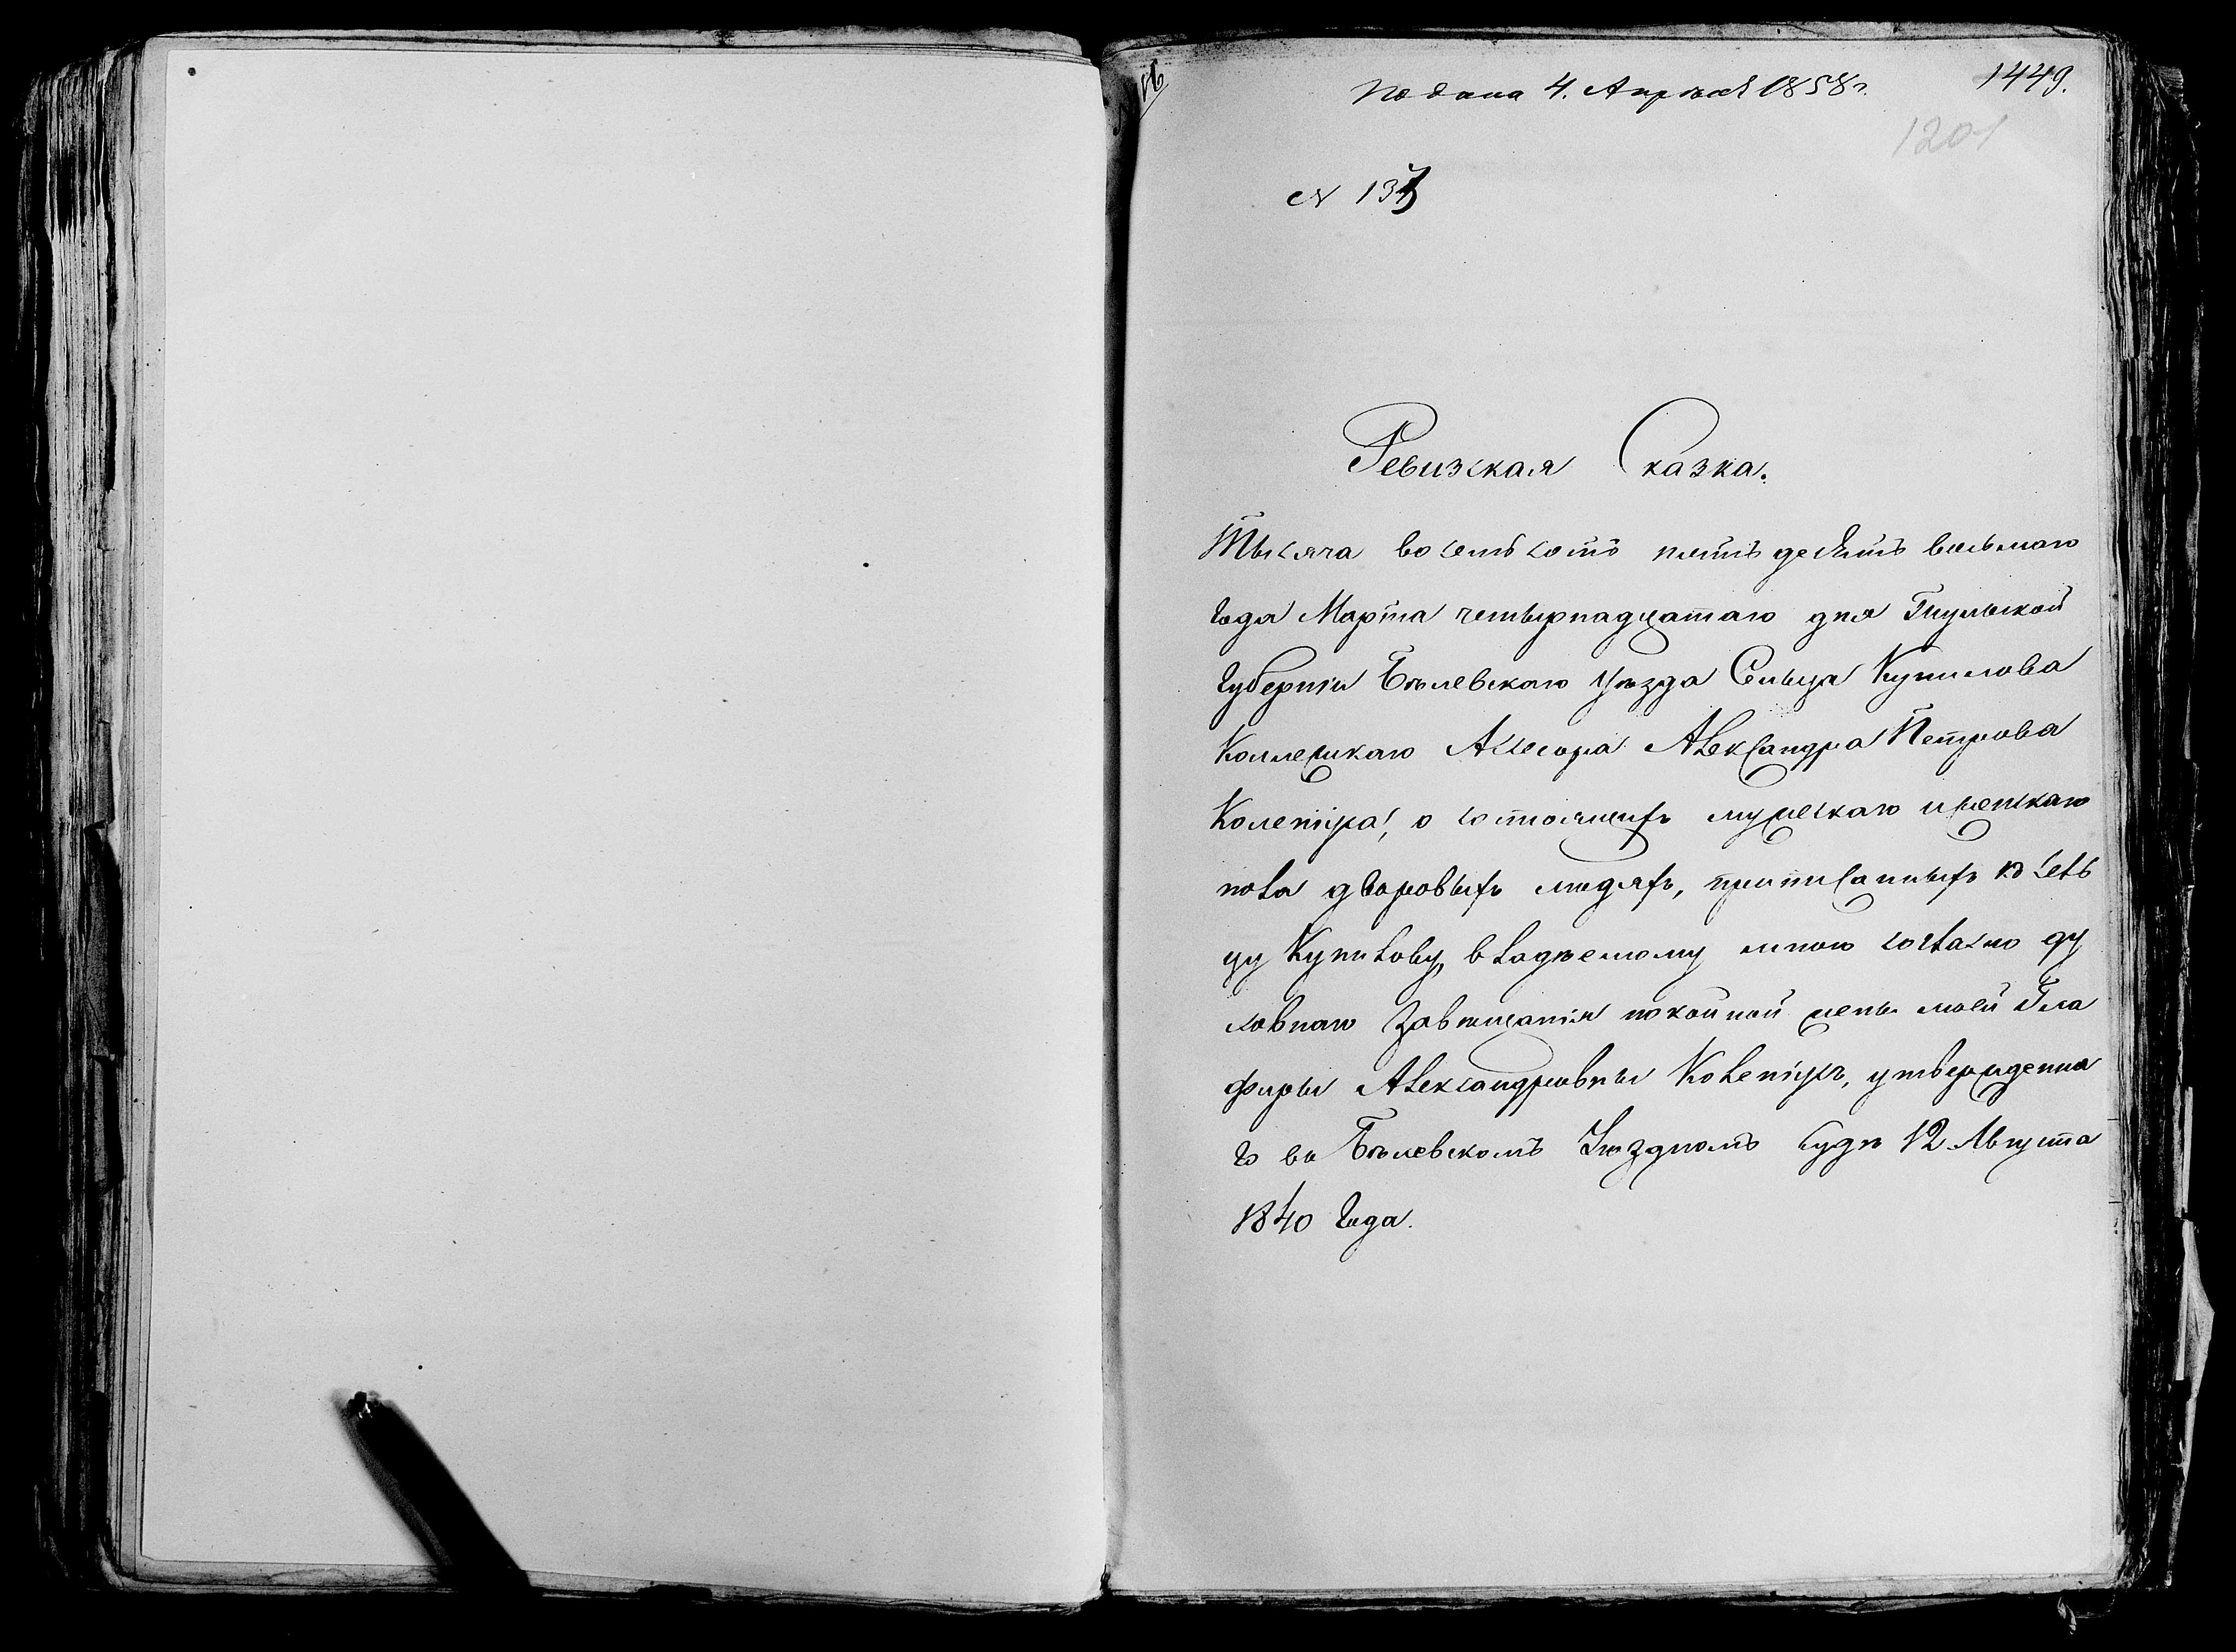 Подана 4. Апрѣля 1858 г.
1449.
1201
№ 137
Ревизская Сказка.
Тысяча восемьсотъ пятьдесятъ восьмаго
года Марта четырнадцатаго дня Тульской
Губерніи Бѣлевскаго Уѣзда Сельца Купилова
Коллежскаго Ассесора Александра Петрова
о состоящихъ мужескаго и женскаго
пола дворовыхъ людяхъ, приписанныхъ къ Сель
цу Купилову, владѣемому мною согласно ду
ховнаго завѣщанія покойной жены моей Гла
фиры Александровны утвержденна
го въ Бѣлевскомъ Уѣздномъ Судѣ 12 Августа
1840 года.